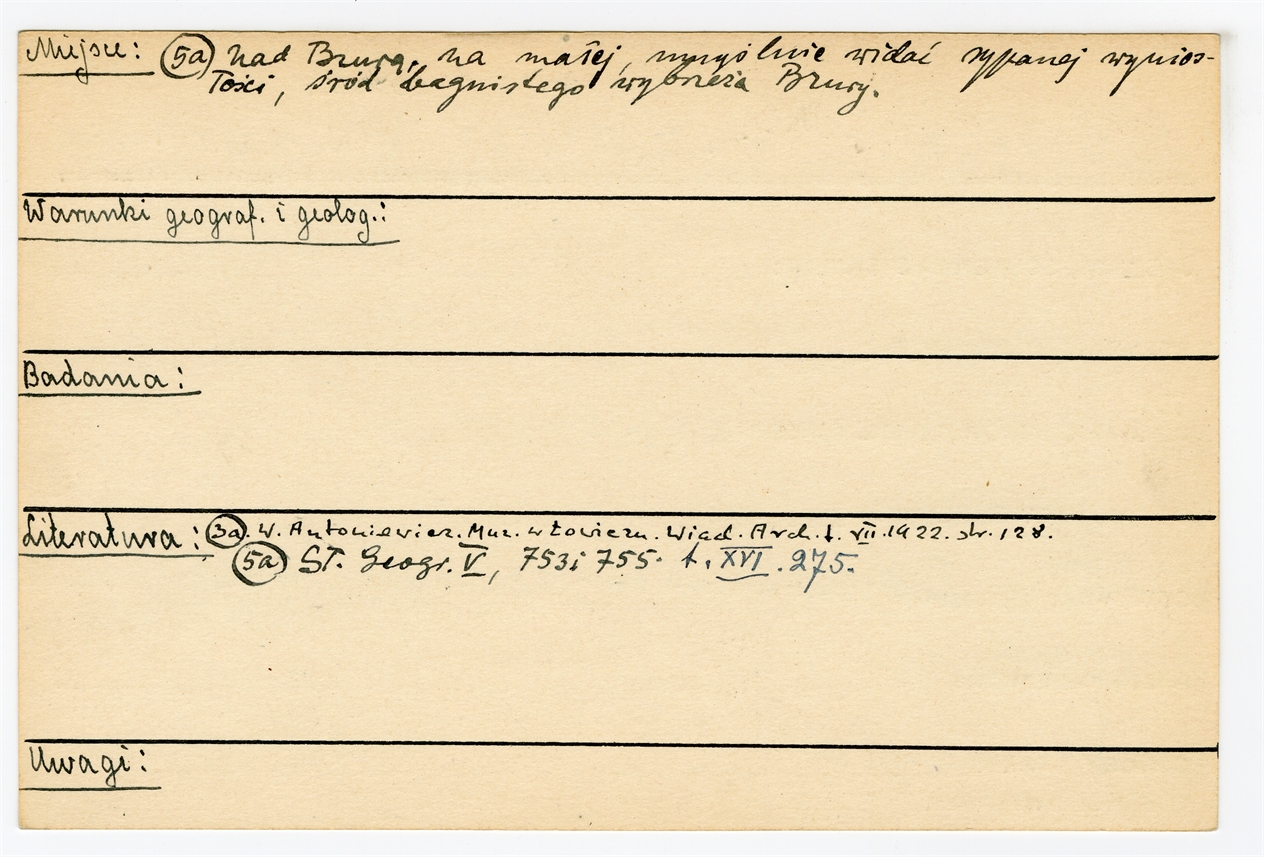 Miejsce: (5a) nad Bzurą, na małej, umyślnie widać sypanej wynios-
łości, śród bagnistego wybrzeża Bzury.
Warunki geograf. i geolog.:
Badania:
Literatura: (3a). W. Antoniewicz. Muz. w Łowiczu. Wiad. Arch. t. VII. 1922. str. 128.
(5a) Sł. Geogr. V, 753 i 755. t. XVI. 275.
Uwagi: